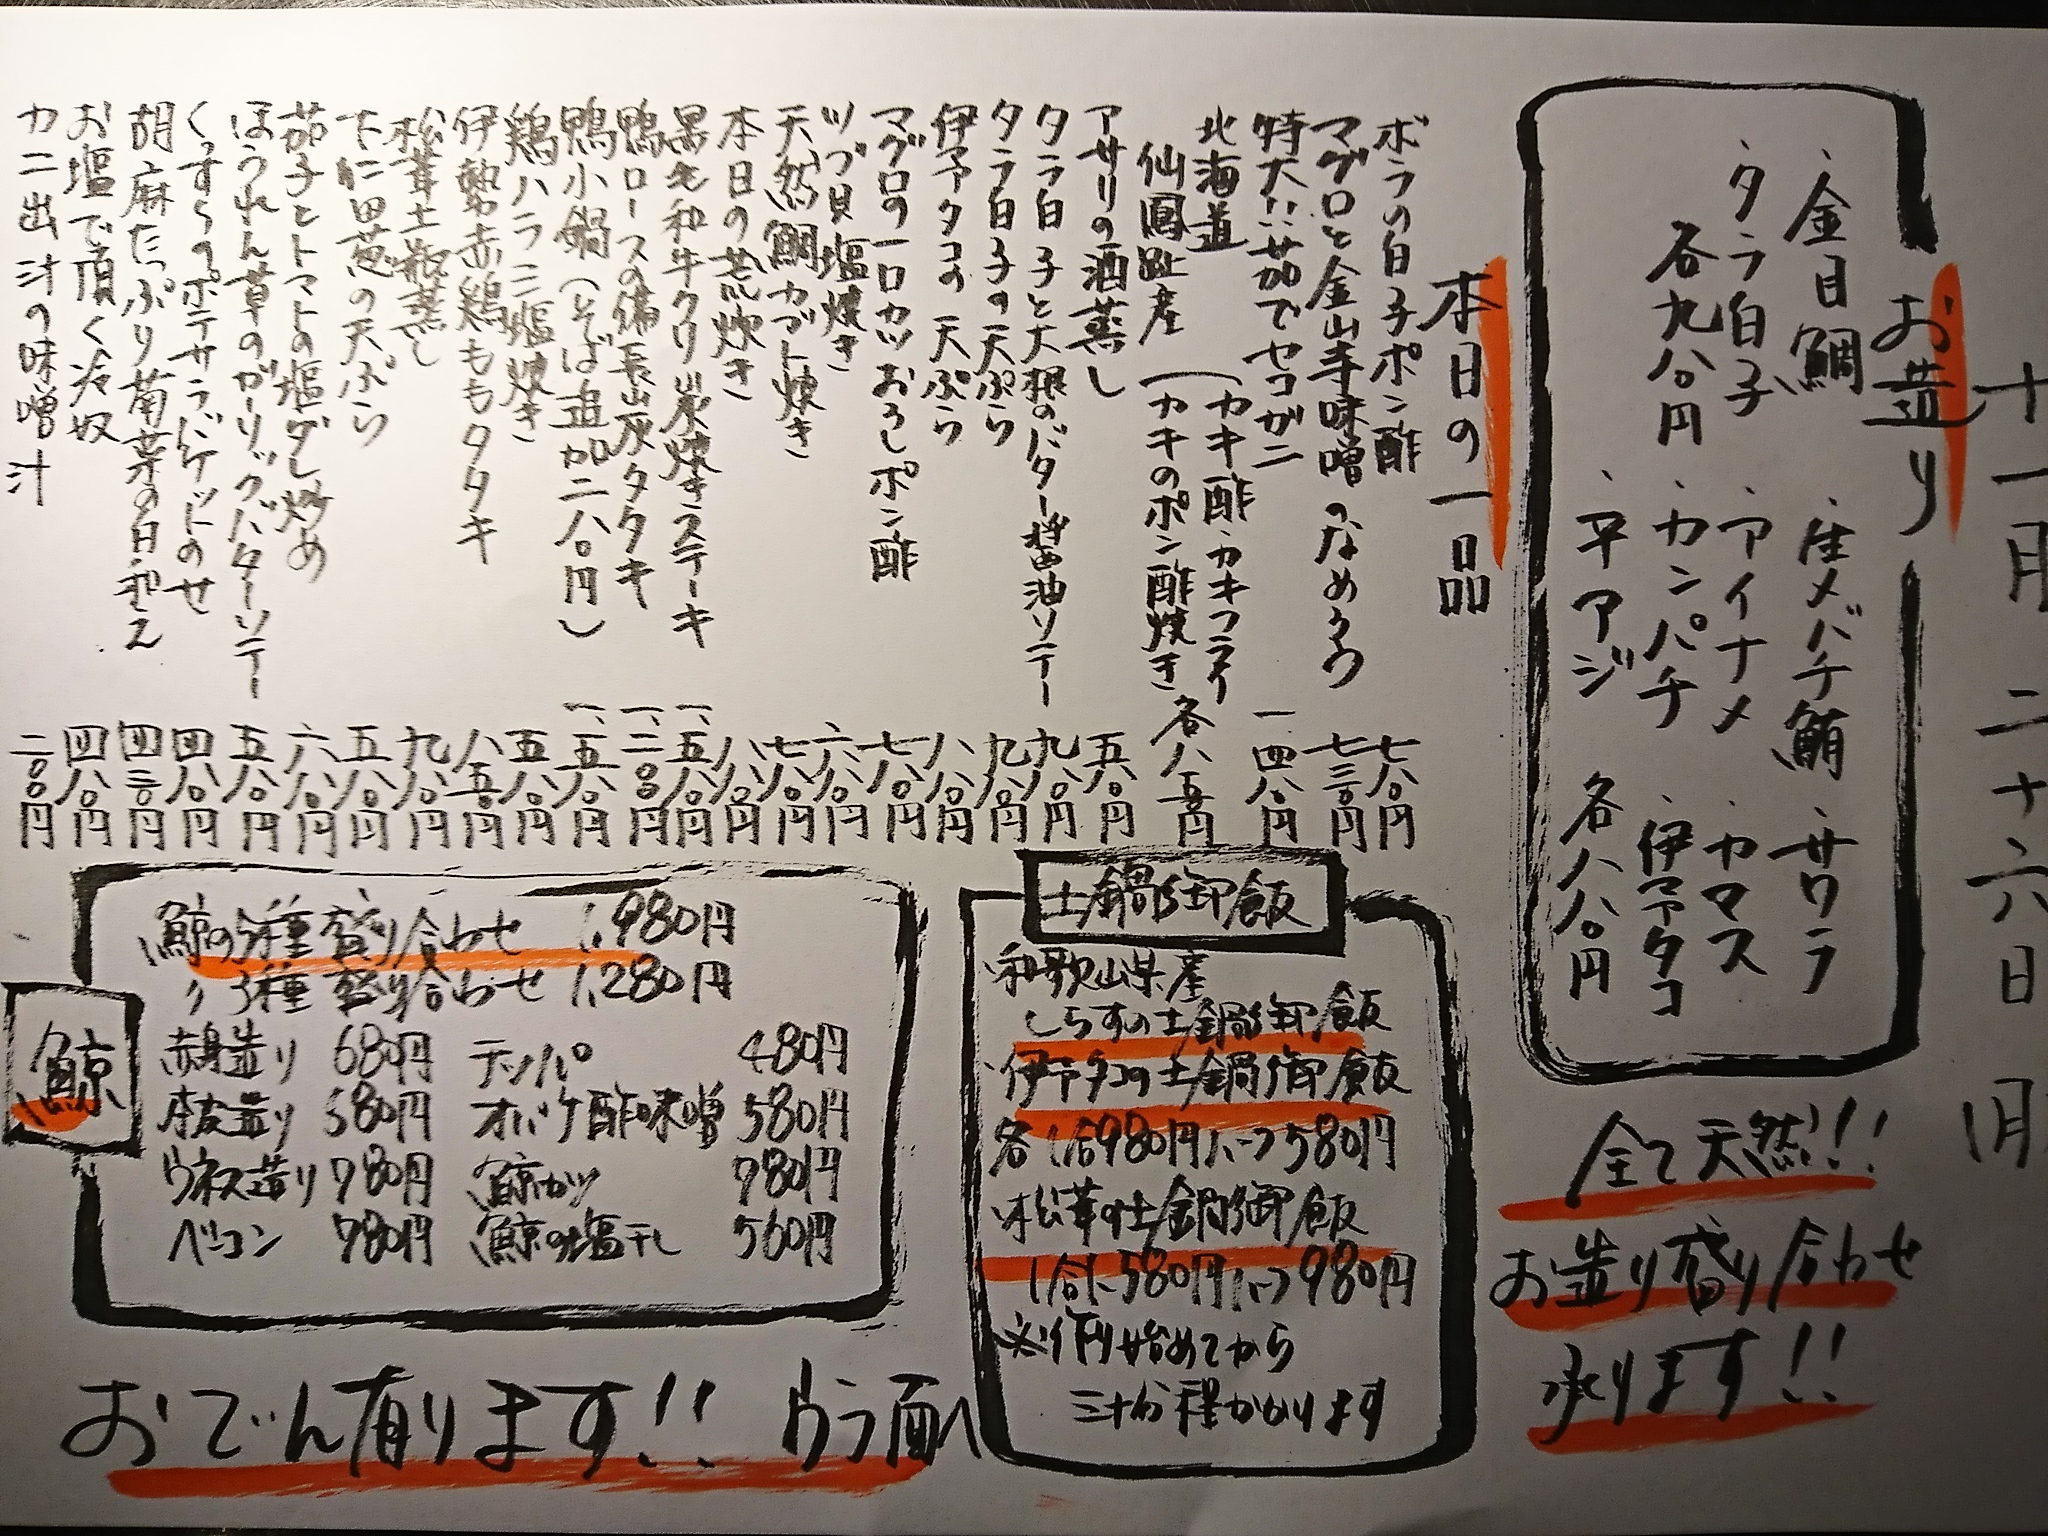 十一月二十六日
お造り
・金目鯛
・タラ白子
各九八〇円
・生メバチ鮪
・アイナメ
・カンパチ
・平アジ
・サワラ
・カマス
・伊予タコ
各八八〇円
全て天然!!
お造り盛り合わせ
承ります!!
本日の一品
ボラの白子ポン酢 七八〇円
マグロと金山寺味噌のなめろう 七三〇円
特大!!茹でセコガニ 一、四八〇円
北海道
仙鳳趾産
(カキ酢・カキフライ
(カキのポン酢焼き 各八五〇円
アサリの酒蒸し 五八〇円
タラ白子と大根のバター醤油ソテー 九八〇円
タラ白子の天ぷら 九八〇円
伊予タコの天ぷら 八八〇円
マグロの一口カツおろしポン酢 七八〇円
ツブ貝塩焼き 六八〇円
天然鯛カブト焼き 七八〇円
本日の荒炊き 八八〇円
黒毛和牛クリ炭焼きステーキ 一、五八〇円
鴨ロースの備長炭タタキ 一、二〇〇円
鴨小鍋(そば追加二八〇円) 一、五八〇円
鶏ハラミ塩焼き 五八〇円
伊勢赤鶏ももタタキ 八五〇円
松茸土瓶蒸し 九八〇円
下仁田葱の天ぷら 五八〇円
茄子とトマトの塩ダレ炒め 六八〇円
ほうれん草のガーリックバターソテー 五八〇円
くずしポテサラバケットのせ 四八〇円
胡麻たっぷり菊菜の白和え 四三〇円
お塩で頂く冷奴 四八〇円
カニ出汁の味噌汁 二〇〇円
土鍋御飯
・和歌山県産
しらすの土鍋御飯
・伊予タコの土鍋御飯
各1合980円ハーフ580円
・松茸の土鍋御飯
1合1,580円ハーフ980円
※作り始めてから
三十分程かかります
鯨
鯨の5種盛り合わせ 1,980円
〃 3種盛り合わせ 1,280円
赤身造り 680円 テッパ 480円
本皮造り 580円 オバケ酢味噌 580円
ウネス造り 780円 鯨カツ 780円
ベーコン 780円 鯨の塩干し 560円
おでん有ります!! ウラ面へ